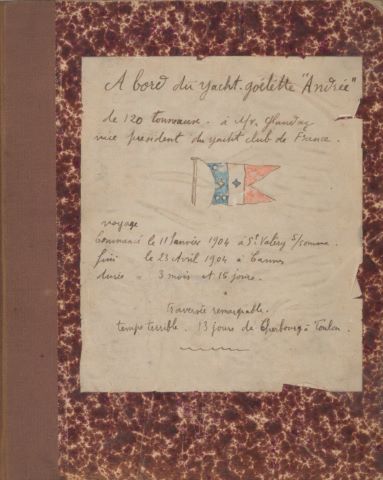 A bord du yacht-goëlette "Andrée"
de 120 tonneaux. à Mr. Glandaz
vice président du yacht club de France.
voyage
Commencé le 11 Janvier 1904 à St Valéry s/somme.
fini le 23 Avril 1904 à Cannes
durée " 3 mois et 16 jours.
Traversée remarquable.
temps terrible. 13 jours de Cherbourg à Toulon.